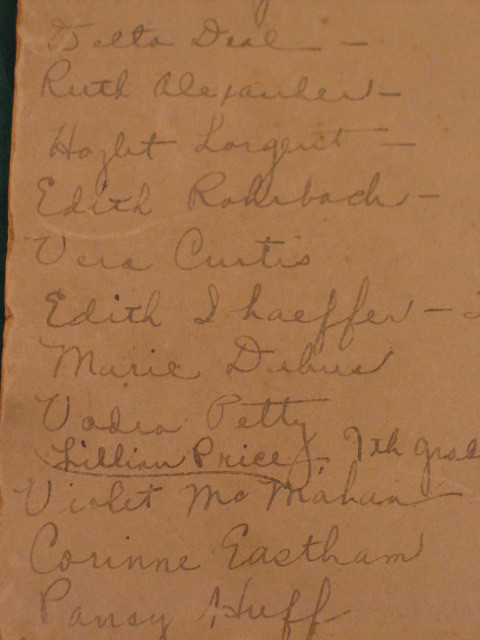 Delta Deal - -
Ruth Alexander -
Hazlet Largent -
Edith Rohrbach -
Vera Curtis
Edith Shaeffer -
Marie Dubus
Vadra Petty
Lillian Price - 7th grad
Violet McMahan
Corinne Eastham
Pansy Huff